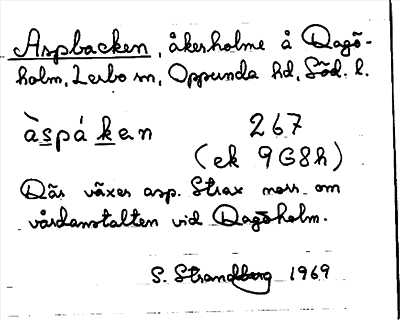 Aspbacken, åkerholme å Dagö-
holm, Lerbo sn, Oppunda hd, Söd. l.
àspákan 267
(ek 9G8h)
Där växer asp. Strax norr om
vårdanstalten vid Dagöholm.
S. Strandberg 1969